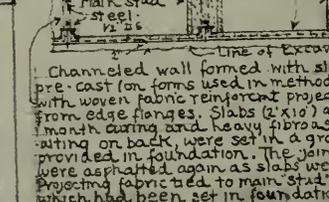 Main stud
steel
2"
Line of Excav
Channeled wall formed with sl
pre-cast (on forms used in method
with woven fabric reinforcmt projec
from edge flanges. Slabs (2'x10') a
month curing and heavy fibroa
ating on back, were set in a gro
provided in foundation. The join
were asphalted again as slabs wer
projecting fabric tied to main stud
which had been set in foundati